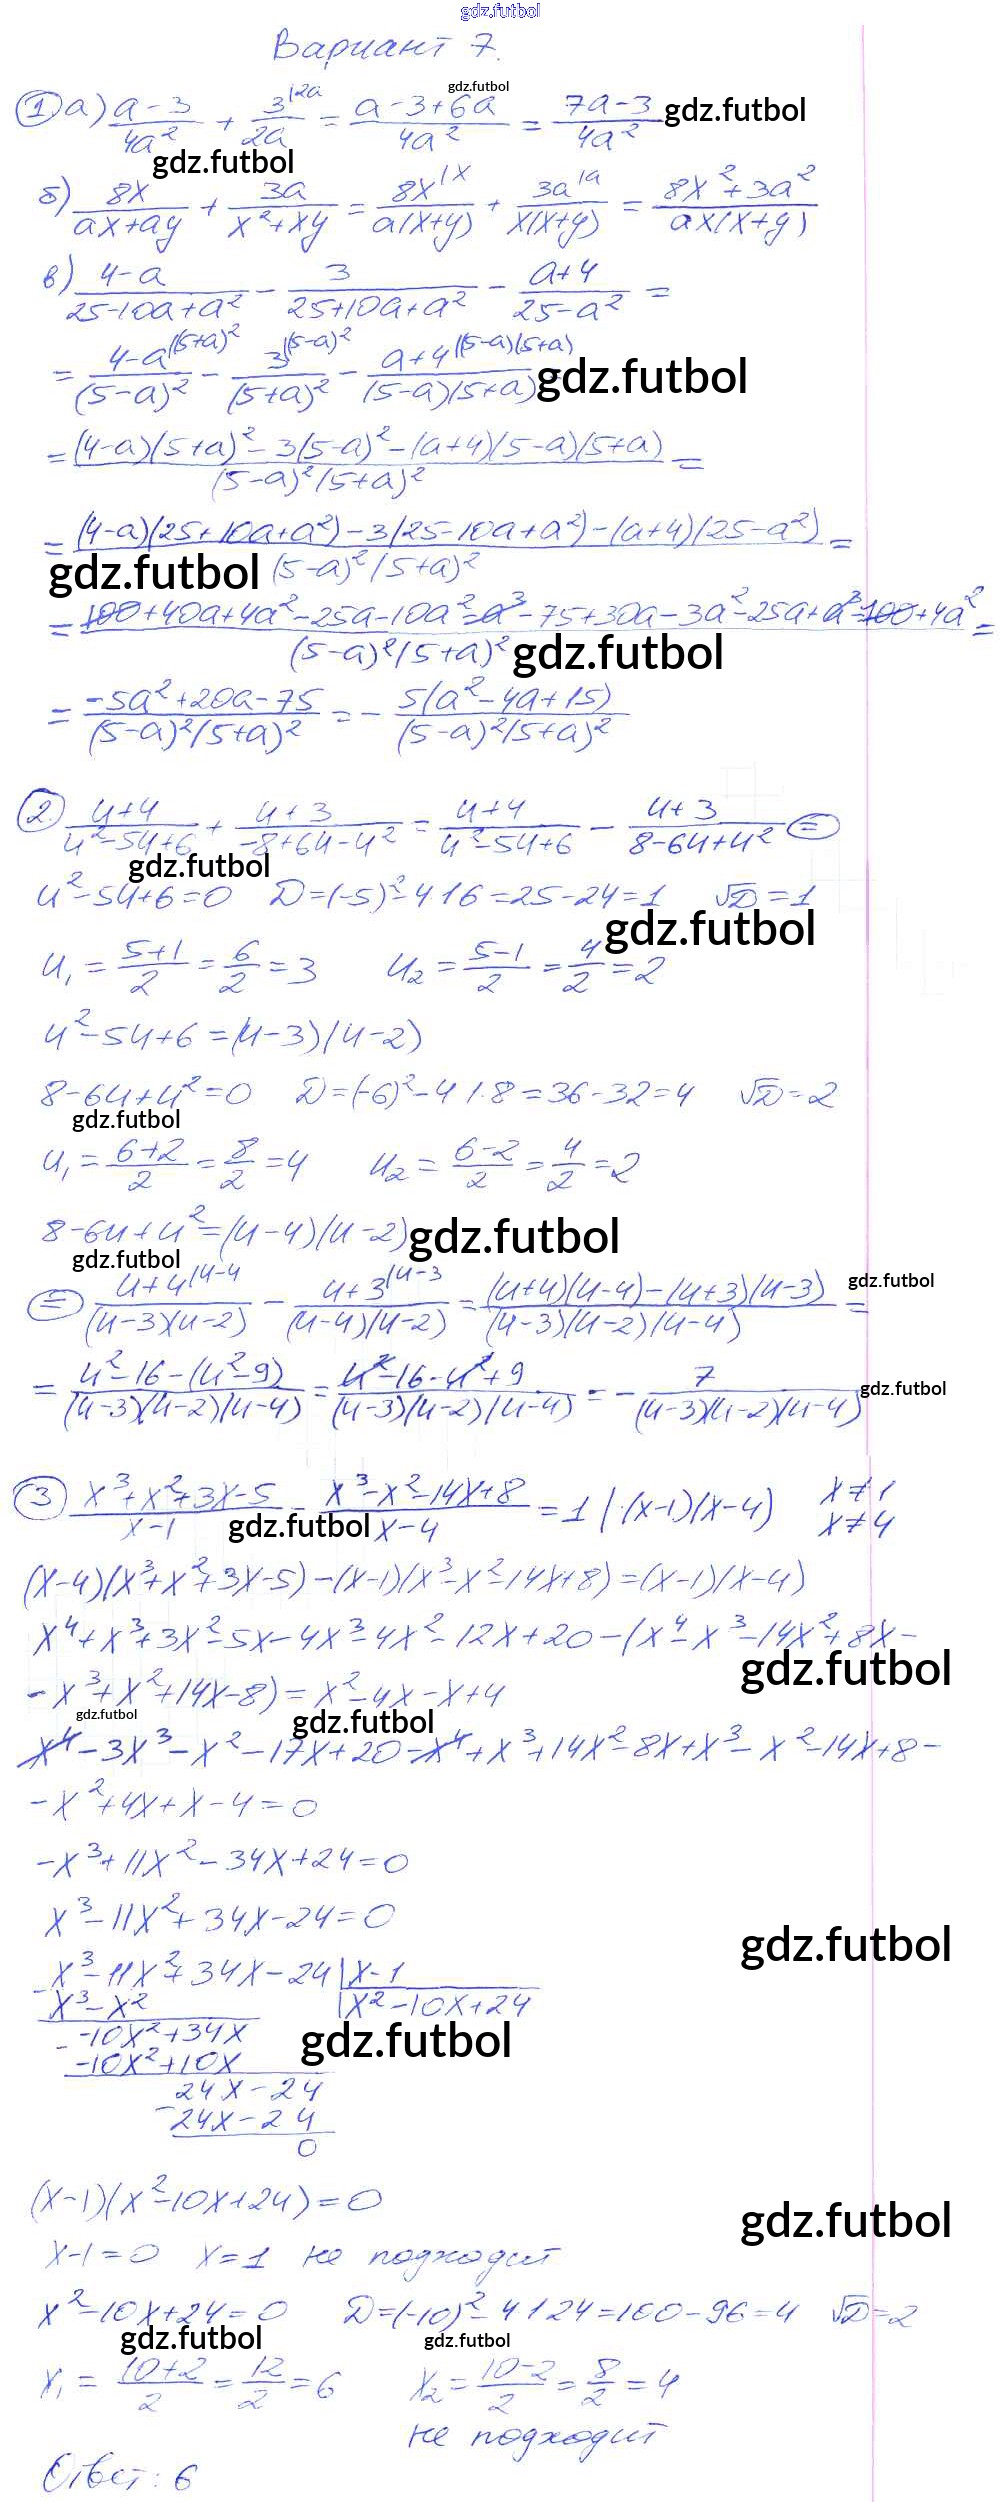 gdz.futbol
Вариант 7.
① а) (a-3)/(4a²) + 3^{|2a}/(2a) = (a-3+6a)/(4a²) = (7a-3)/(4a²)
gdz.futbol
gdz.futbol
gdz.futbol
б) 8x/(ax+ay) + 3a/(x²+xy) = 8x^{|x}/(a(x+y)) + 3a^{|a}/(x(x+y)) = (8x²+3a²)/(ax(x+y))
в) (4-a)/(25-10a+a²) - 3/(25+10a+a²) - (a+4)/(25-a²) =
= (4-a)^{|(5+a)²}/(5-a)² - 3^{|(5-a)²}/(5+a)² - (a+4)^{|(5-a)(5+a)}/((5-a)(5+a)) =
gdz.futbol
= ((4-a)(5+a)²-3(5-a)²-(a+4)(5-a)(5+a))/((5-a)²(5+a)²) =
= ((4-a)(25+10a+a²)-3(25-10a+a²)-(a+4)(25-a²))/((5-a)²(5+a)²) =
gdz.futbol
= (100+40a+4a²-25a-10a²-a³-75+30a-3a²-25a+a³-100+4a²)/((5-a)²(5+a)²) =
gdz.futbol
= (-5a²+20a-75)/((5-a)²(5+a)²) = - 5(a²-4a+15)/((5-a)²(5+a)²)
② (u+4)/(u²-5u+6) + (u+3)/(-8+6u-u²) = (u+4)/(u²-5u+6) - (u+3)/(8-6u+u²) ⊜
gdz.futbol
u²-5u+6=0 D=(-5)²-4·1·6=25-24=1 √D=1
gdz.futbol
u₁ = (5+1)/2 = 6/2 = 3 u₂ = (5-1)/2 = 4/2 = 2
u²-5u+6=(u-3)(u-2)
8-6u+u²=0 D=(-6)²-4·1·8=36-32=4 √D=2
gdz.futbol
u₁ = (6+2)/2 = 8/2 = 4 u₂ = (6-2)/2 = 4/2 = 2
8-6u+u²=(u-4)(u-2)
gdz.futbol
gdz.futbol
⊜ (u+4)^{|u-4}/((u-3)(u-2)) - (u+3)^{|u-3}/((u-4)(u-2)) = ((u+4)(u-4)-(u+3)(u-3))/((u-3)(u-2)(u-4)) =
gdz.futbol
= (u²-16-(u²-9))/((u-3)(u-2)(u-4)) = (u²-16-u²+9)/((u-3)(u-2)(u-4)) = - 7/((u-3)(u-2)(u-4))
gdz.futbol
③ (x³+x²+3x-5)/(x-1) - (x³-x²-14x+8)/(x-4) = 1 |·(x-1)(x-4) x≠1
x≠4
gdz.futbol
(x-4)(x³+x²+3x-5)-(x-1)(x³-x²-14x+8)=(x-1)(x-4)
x⁴+x³+3x²-5x-4x³-4x²-12x+20-(x⁴-x³-14x²+8x-
gdz.futbol
-x³+x²+14x-8)=x²-4x-x+4
gdz.futbol
gdz.futbol
x⁴-3x³-x²-17x+20-x⁴+x³+14x²-8x+x³-x²-14x+8-
-x²+4x+x-4=0
-x³+11x²-34x+24=0
x³-11x²+34x-24=0
gdz.futbol
x³-11x²+34x-24 | x-1
x³-x² | x²-10x+24
-10x²+34x
gdz.futbol
-10x²+10x
24x-24
24x-24
0
(x-1)(x²-10x+24)=0
gdz.futbol
x-1=0 x=1 не подходит
x²-10x+24=0 D=(-10)²-4·1·24=100-96=4 √D=2
gdz.futbol
gdz.futbol
x₁ = (10+2)/2 = 12/2 = 6 x₂ = (10-2)/2 = 8/2 = 4
не подходит
Ответ: 6